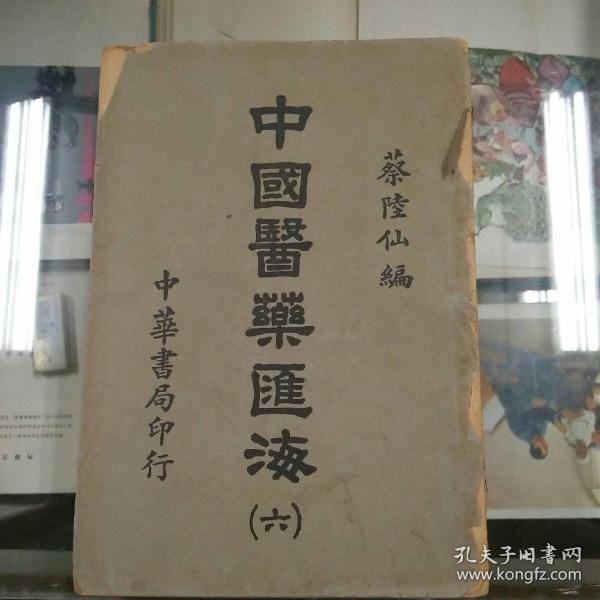 蔡陸仙編
中國醫藥匯海
(六)
中華書局印行
孔夫子旧書网
www.kongfz.com